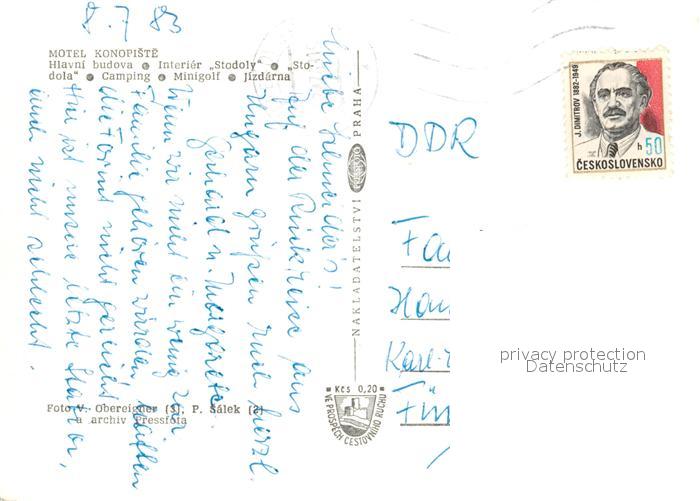 8. 7. 83
MOTEL KONOPIŠTĚ
Hlavní budova ● Interiér „Stodoly“ ● „Sto-
dola“ ● Camping ● Minigolf ● Jízdárna
Liebe Schneider's!
Auf der Rückreise aus
Ungarn grüßen Euch herzl.
Gerhard u. Margarete.
Wenn wir nicht ein wenig zur
Familie gehören würden, hätten
die Forint nicht gereicht.
Hier ist unsere letzte Station,
auch nicht schlecht.
Foto V. Obereigner (3), P. Sálek (2)
a archiv Pressfota
NAKLADATELSTVÍ PRAHA
Kčs 0,20
VE PROSPĚCH CESTOVNÍHO RUCHU
J. DIMITROV 1882-1949
h 50
ČESKOSLOVENSKO
DDR
Fa
Karl-
privacy protection
Datenschutz